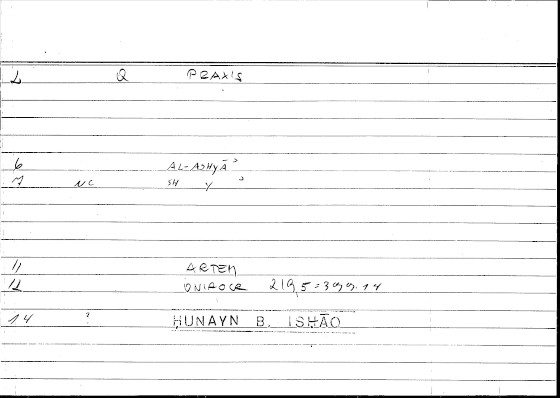 L Q PRAXIS
6 AL-ASHYĀʾ
7 NC SH Y ʾ
11 ARTEM
12 219,5-399.14
14 ? HUNAYN B. ISHĀQ